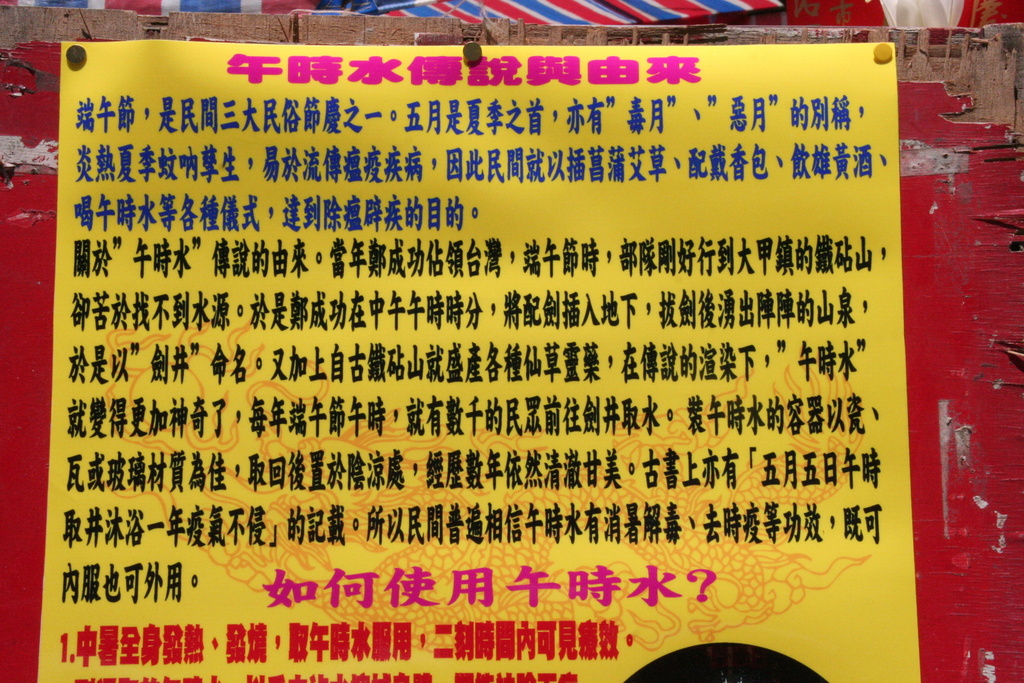 午時水傳說與由來
端午節，是民間三大民俗節慶之一。五月是夏季之首，亦有"毒月"、"惡月"的別稱，
炎熱夏季蚊吶孳生，易於流傳瘟疫疾病，因此民間就以插菖蒲艾草、配戴香包、飲雄黃酒、
喝午時水等各種儀式，達到除瘟辟疾的目的。
關於"午時水"傳說的由來。當年鄭成功佔領台灣，端午節時，部隊剛好行到大甲鎮的鐵砧山，
卻苦於找不到水源。於是鄭成功在中午午時時分，將配劍插入地下，拔劍後湧出陣陣的山泉，
於是以"劍井"命名。又加上自古鐵砧山就盛產各種仙草靈藥，在傳說的渲染下，"午時水"
就變得更加神奇了，每年端午節午時，就有數千的民眾前往劍井取水。裝午時水的容器以瓷、
瓦或玻璃材質為佳，取回後置於陰涼處，經歷數年依然清澈甘美。古書上亦有「五月五日午時
取井沐浴一年疫氣不侵」的記載。所以民間普遍相信午時水有消暑解毒、去時疫等功效，既可
內服也可外用。
如何使用午時水？
1.中暑全身發熱、發燒，取午時水服用，二刻時間內可見療效。